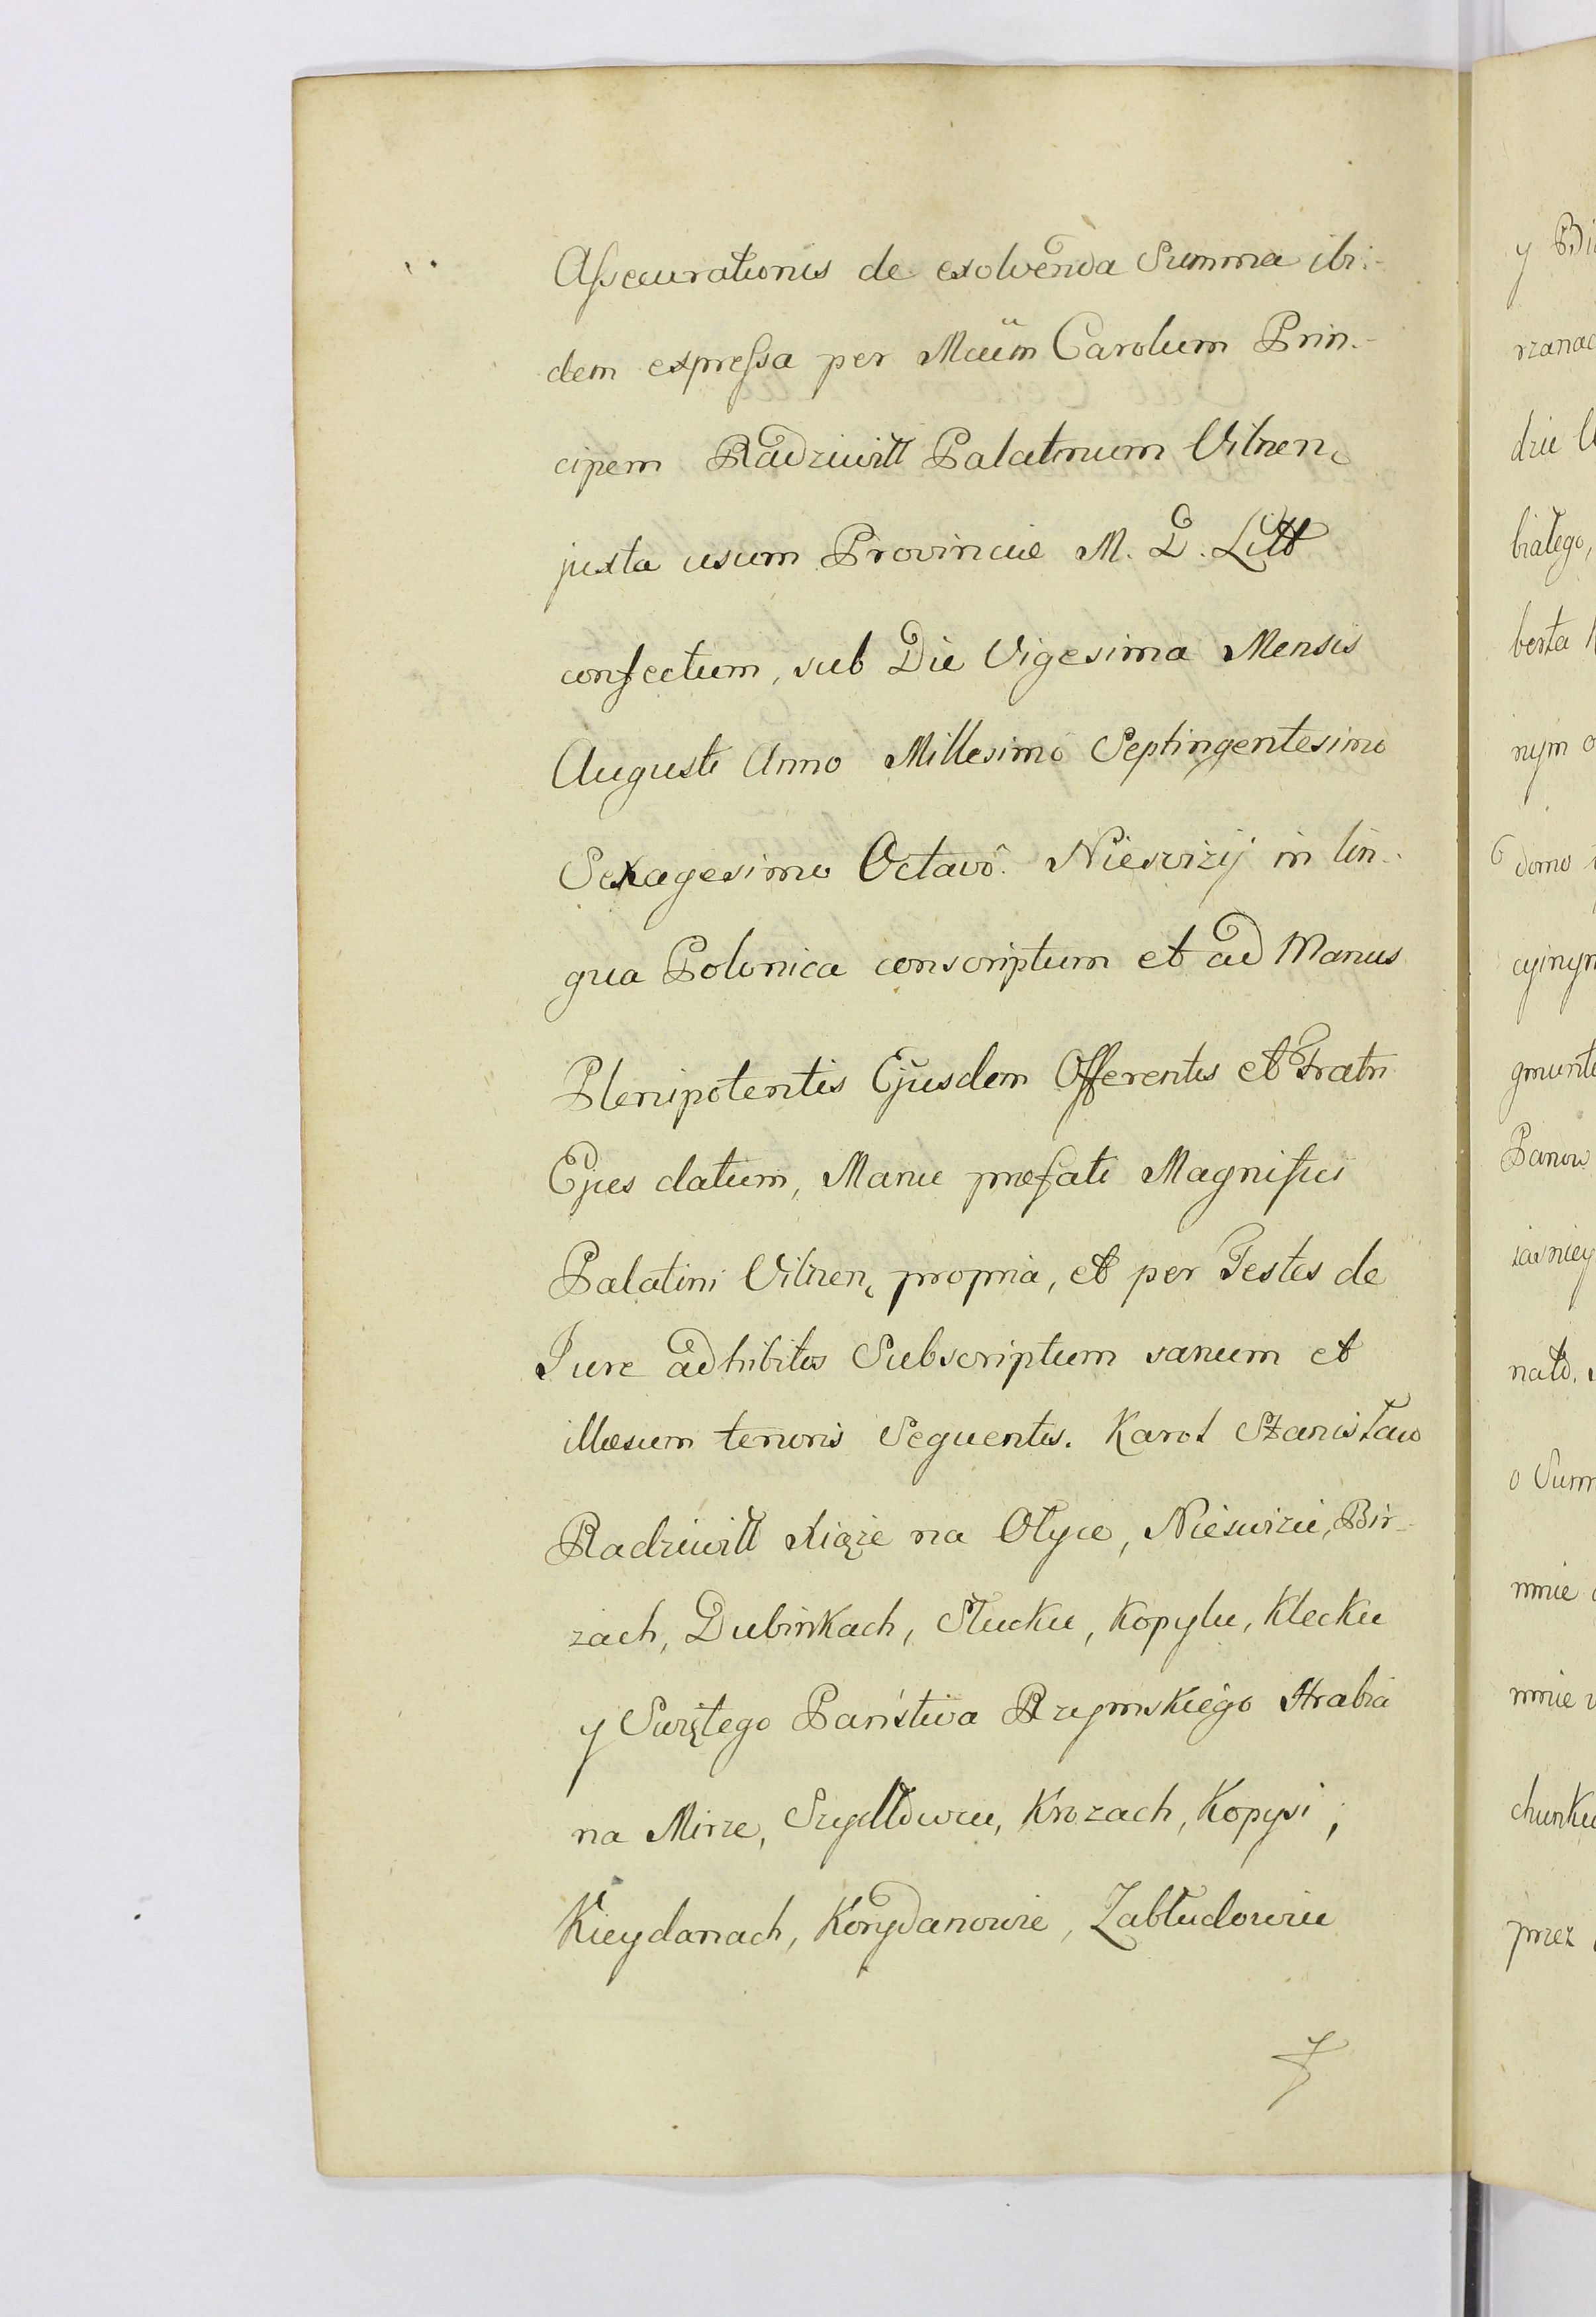 Assecurationis de exolvenda Summa ibi-
dem expressa per Mcum Carolum Prin-
cipem Radziwiłł Palatinum Vilnen.
juxta usum Provinciæ M. D. Litt
confectum, sub Die Vigesima Mensis
Augusti Anno Millesimo Septingentesimo
Sexagesimo Octavo. Niesvizij in lin-
gua Polonica conscriptum et ad Manus
Plenipotentis Ejusdem Offerentis et Fratri
Ejus datum, Manu præfati Magnifici
Palatini Vilnen, propria, et per Testes de
Jure adhibitos Subscriptum sanum et
illæsum tenoris Sequentis. Karol Stanisław
Radziwiłł Xiąże na Ołyce, Nieswizu, Bir-
zach, Dubinkach, Słucku, Kopylu, Klecku
y Swiętego Państwa Rzymskiego Hrabia
na Mirze, Szydłowcu, Krozach, Kopysi,
Kieydanach, Koydanowie, Zabłudowiu
y
rzanac
dzie
białego,
berta
nym
domo
cyinym
gmunta
Panow
iasniey
nato.
o Summ
mnie
mnie
chunku
przez